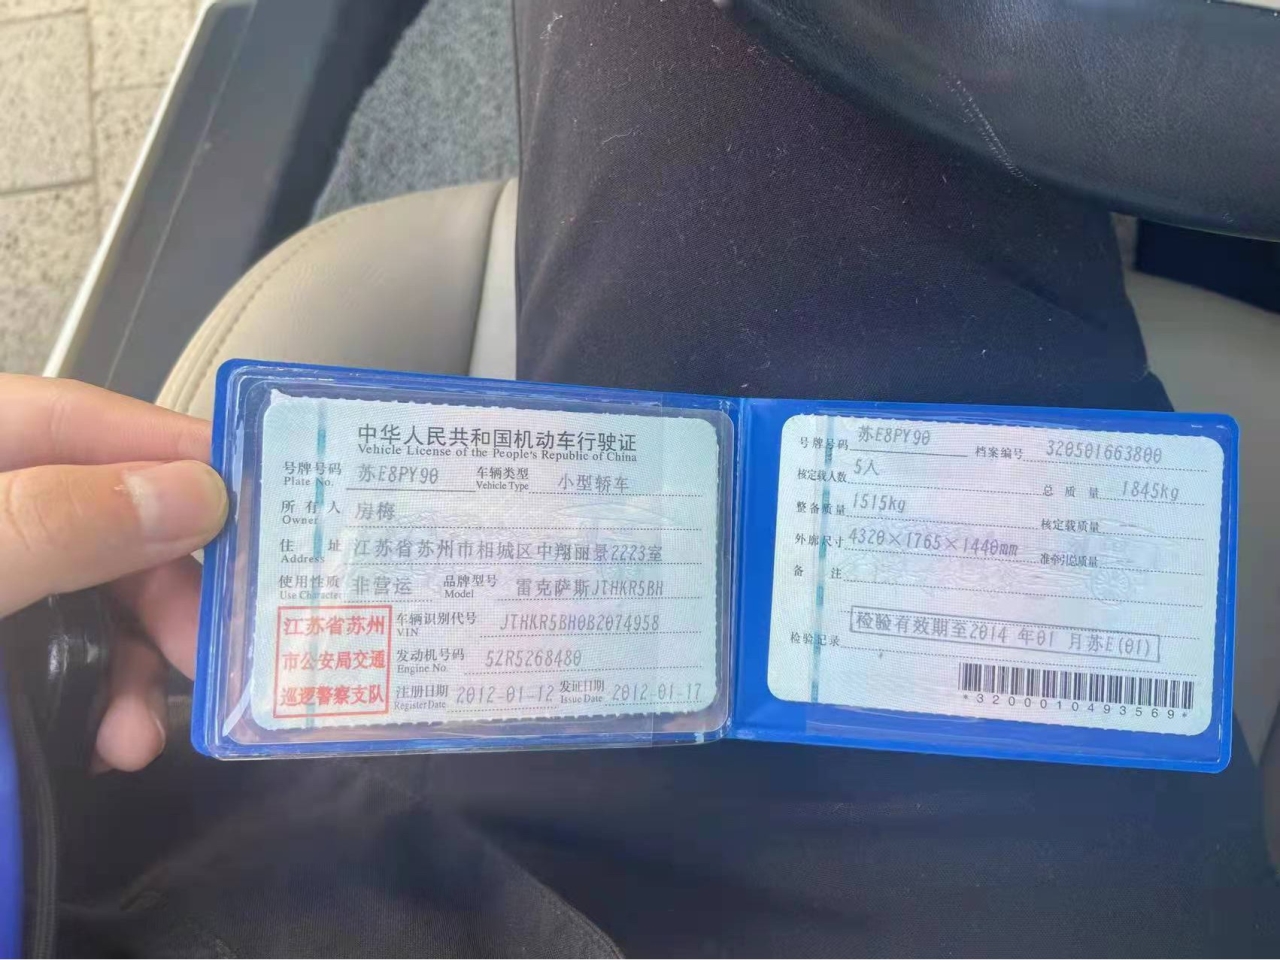 中华人民共和国机动车行驶证
Vehicle License of the People's Republic of China
号牌号码 苏E8PY90 车辆类型 小型轿车
Plate No. Vehicle Type
所有人 房梅
Owner
住址 江苏省苏州市相城区中翔丽景2223室
Address
使用性质 非营运 品牌型号 雷克萨斯JTHKR5BH
Use Character Model
江苏省苏州
市公安局交通
巡逻警察支队
车辆识别代号 JTHKR5BH0B2074958
VIN
发动机号码 5ZR5268480
Engine No.
注册日期 2012-01-12 发证日期 2012-01-17
Register Date Issue Date
号牌号码 苏E8PY90 档案编号 320501663800
核定载人数 5人 总质量 1845kg
整备质量 1515kg 核定载质量
外廓尺寸 4320×1765×1440mm 准牵引总质量
备注
检验记录 检验有效期至2014年01月苏E(01)
*3200010493569*